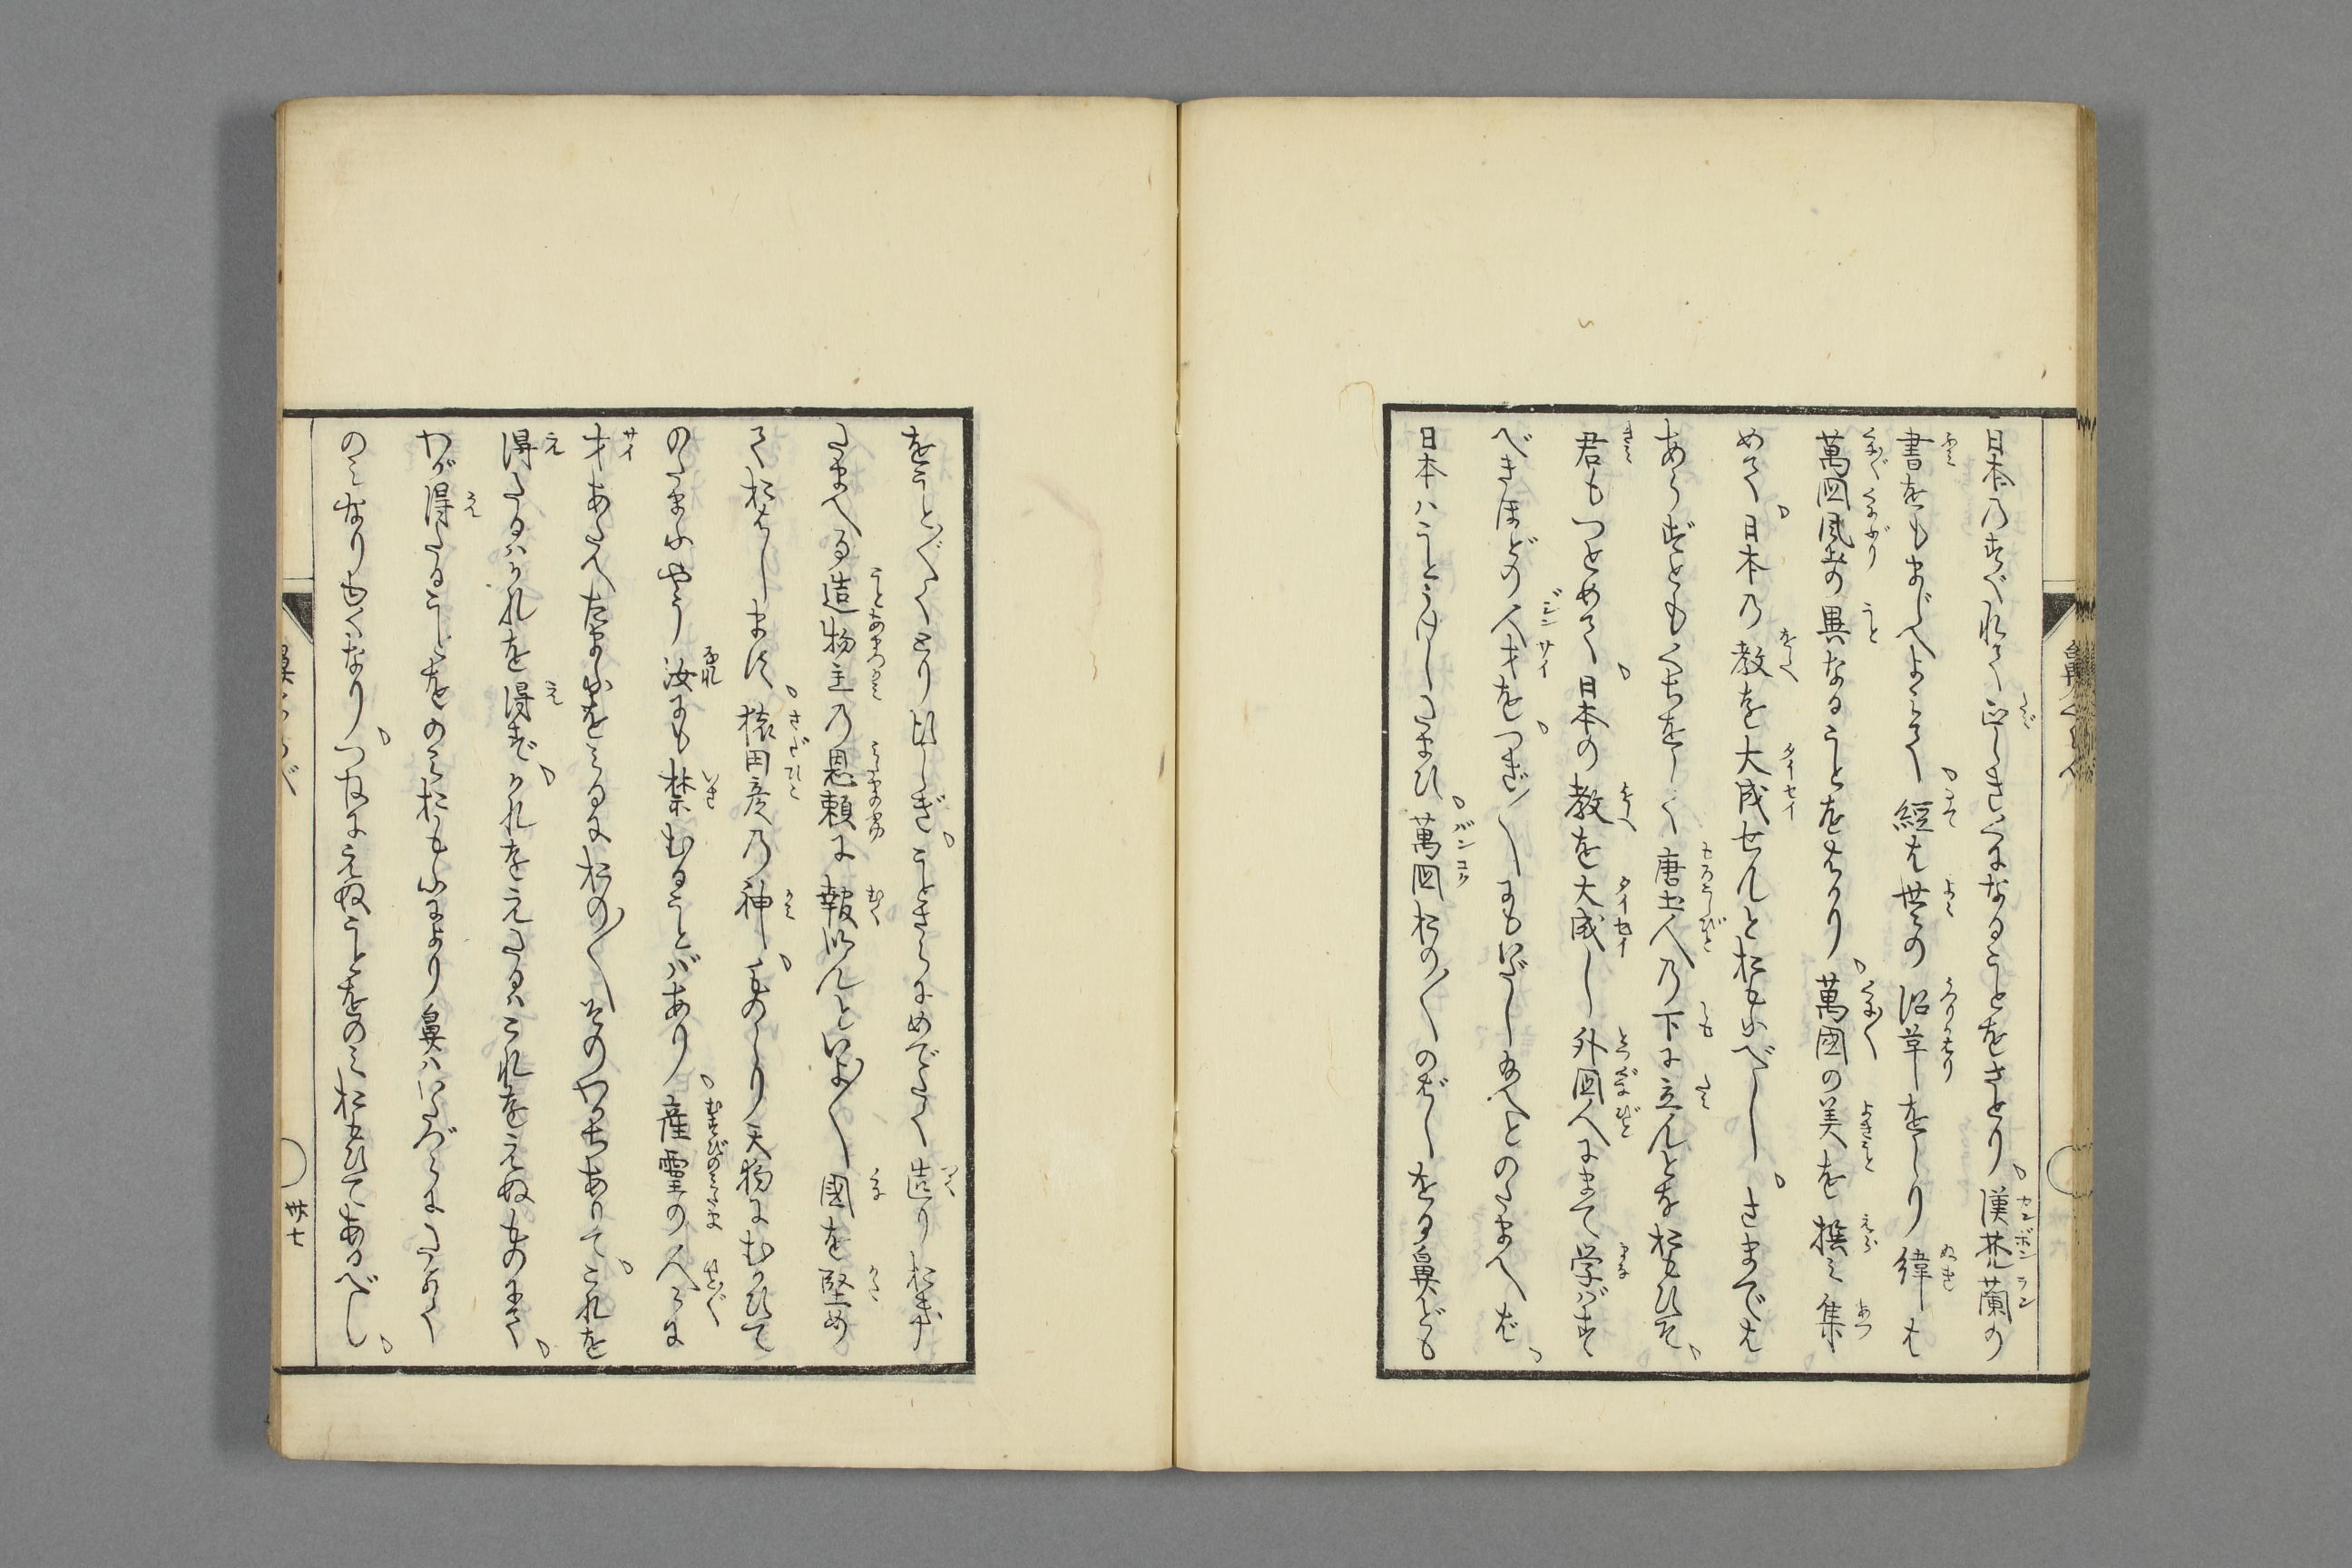 日本乃すべれて正しきくになることをさとり漢梵蘭の
書をもまじへよみて經は世々の沿革をしり緯は
萬国風土の異なることをはかり萬國の美を撰み集
めて日本乃教を大成せんとおもふべしさまでは
あらずともくちをしく唐土人乃下に立んとなおもひそ
君もつとめて日本の教を大成し外国人にまで学ばす
べきほどの人才をつぎ〳〵にもいだし給へとのたまへば
日本ハことうけしたまひ萬国おの〳〵のぞしをる鼻ども
をこと〴〵くとり出しぎことさらにめでたく造りおき
たまへる造物主乃恩頼に報はんといよ〳〵國を堅め
ておはしまけ猿田彦乃神ものしり天狗にむかひて
のたまふやう汝にも禁むることバあり産霊の人々に
才あたへたまふをみるにおの〳〵そのわかちありてこれを
得たるハかれを得ずかれをえたるハこれをえぬものにて
わが得たることをのみおもふにより鼻ハいたづらにたかく
のみなりゆくなりつねにえぬことをのみおもひてあるべし
鼻くらべ
廿七